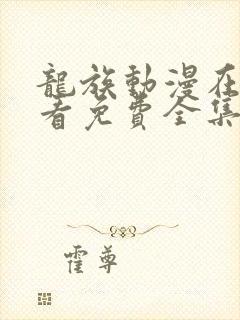 龍族動漫在
看免費全集
霍尊